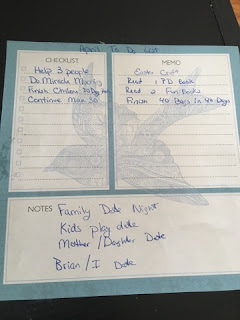 April To Do List
CHECKLIST
Help 3 people
Do Miracle Morning
Finish Chalene 30 Day
Continue Max 30
MEMO
Easter
Read 1 PD Book
Read 2 Fun Books
Finish 40 Bags in 40 Days
NOTES
Family Date Night
Kids play date
Mother/Daughter Date
Brian/I Date